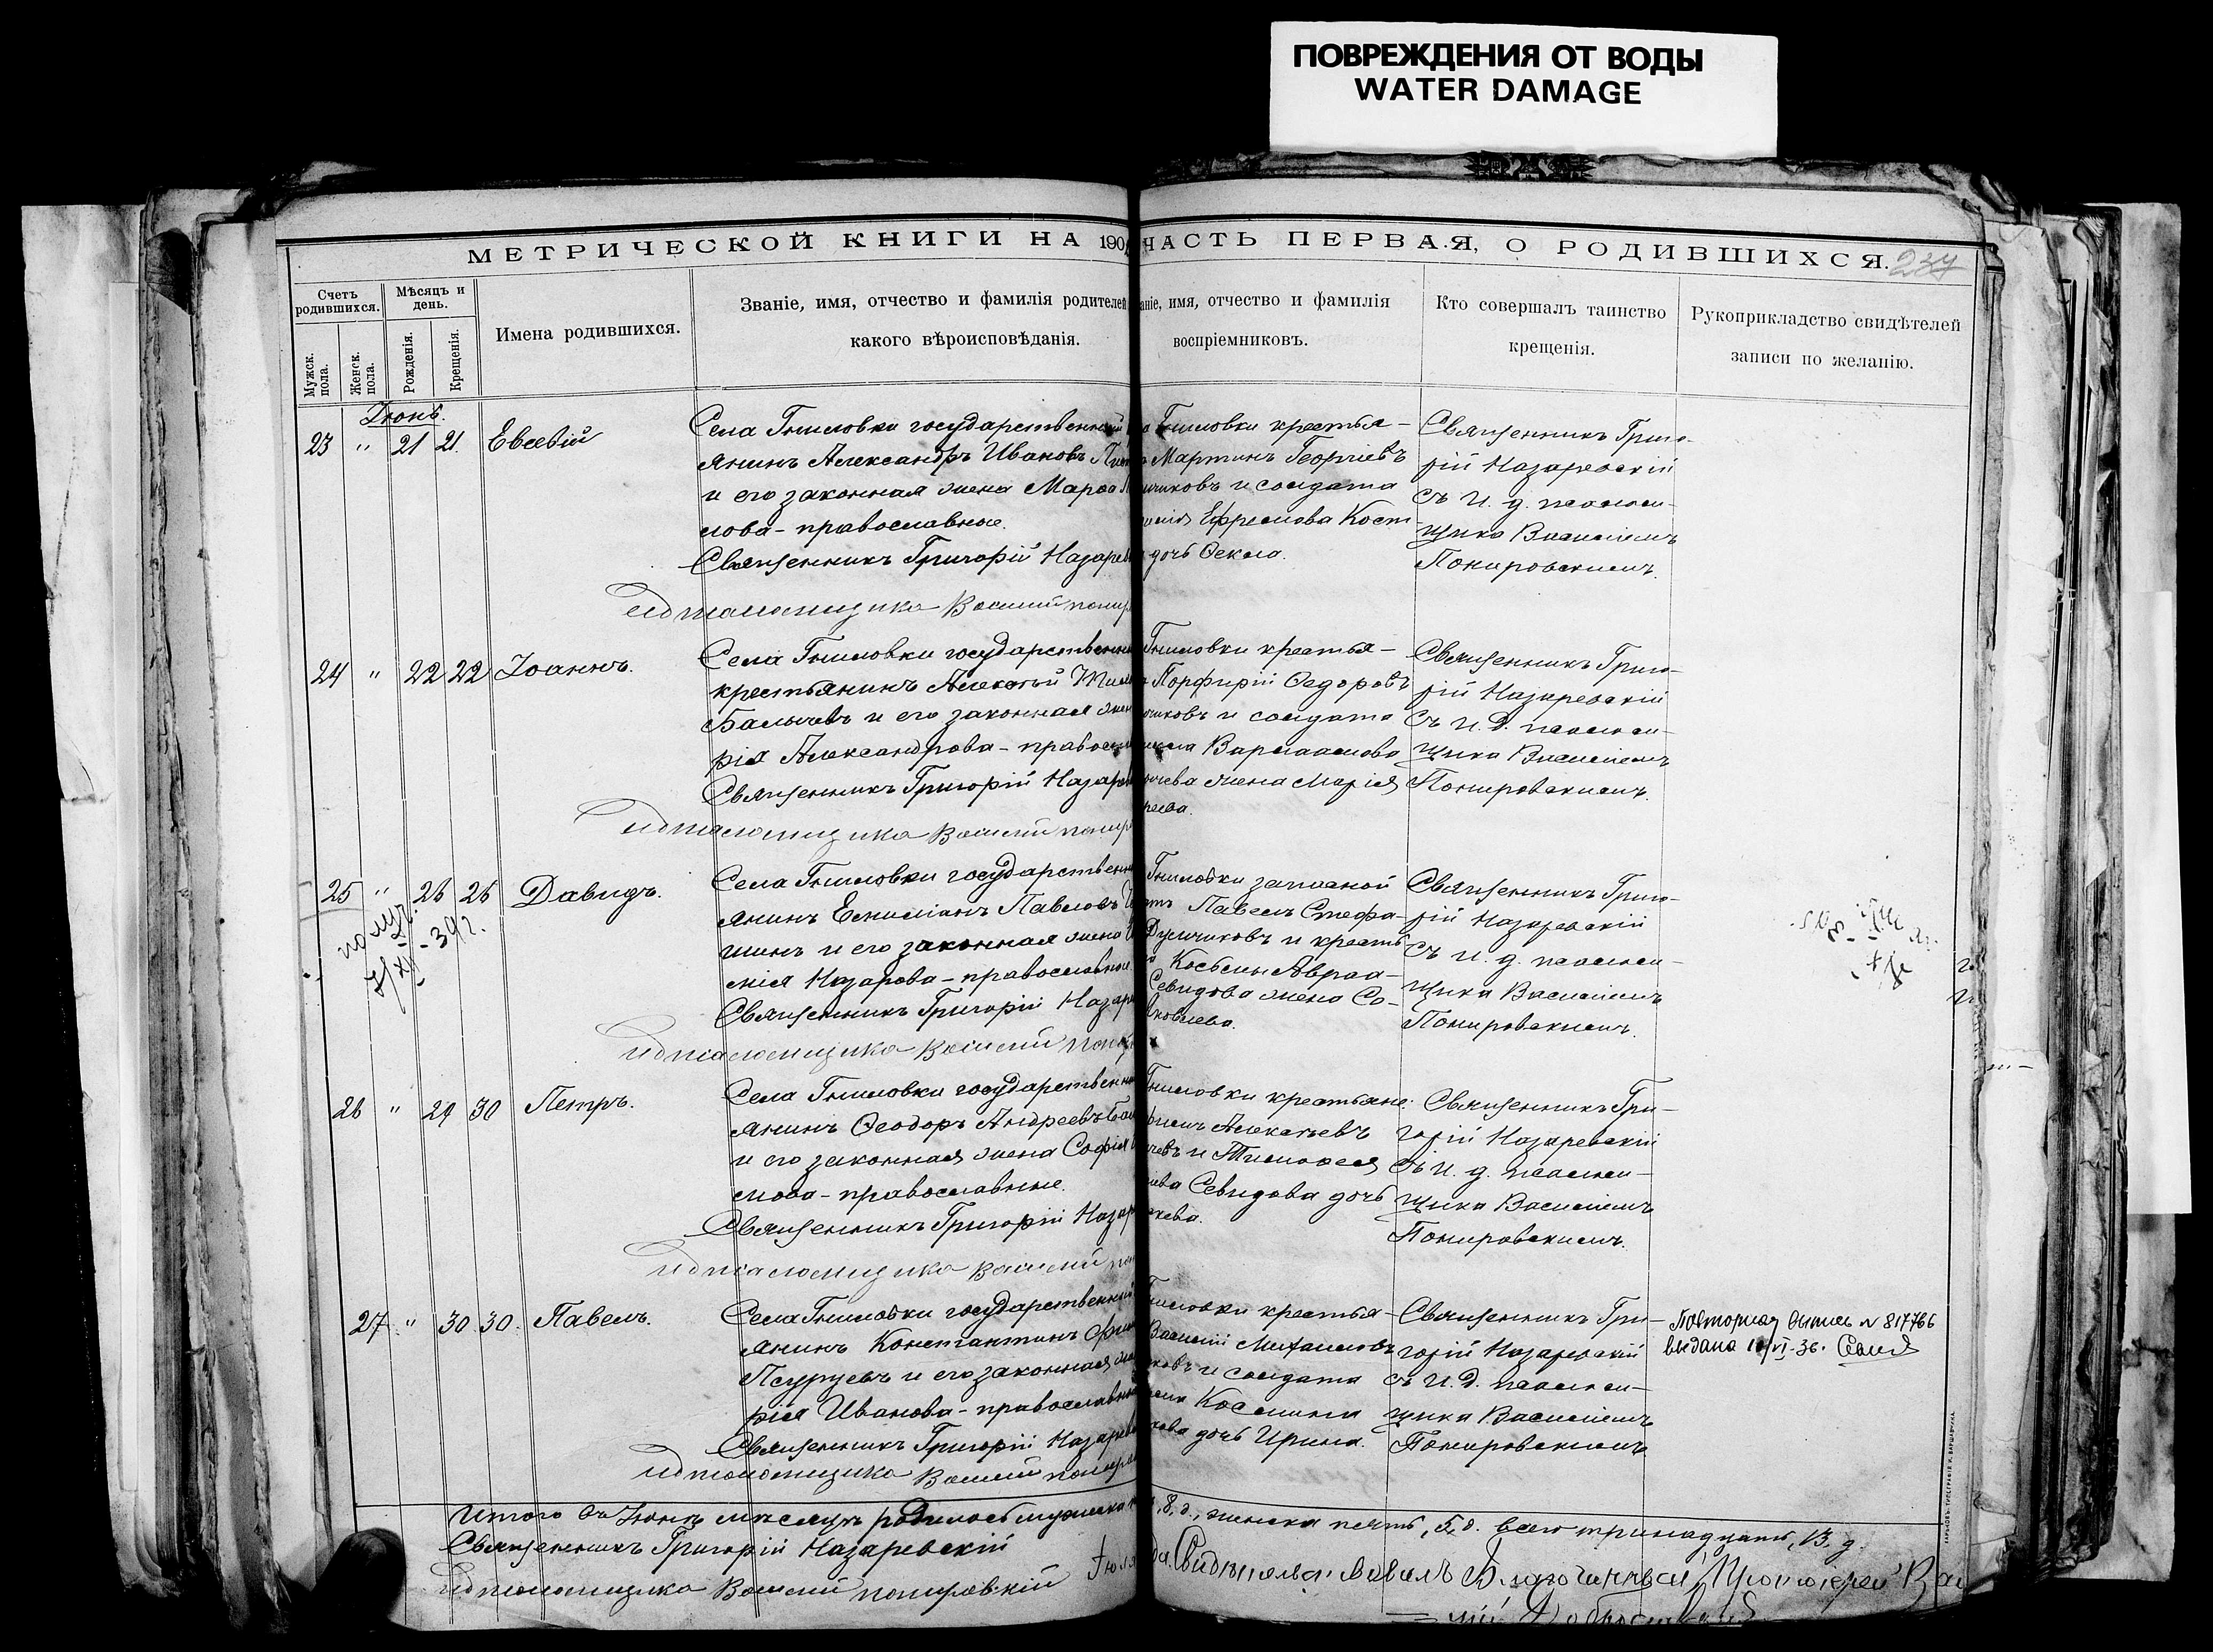 ПОВРЕЖДЕНИЯ ОТ ВОДЫ
WATER DAMAGE
МЕТРИЧЕСКОЙ КНИГИ НА 190
ЧАСТЬ ПЕРВАЯ, О РОДИВШИХСЯ.
237
Счетъ родившихся.
Мужск. пола.
Женск. пола.
Мѣсяцъ и день.
Рожденія.
Крещенія.
Имена родившихся.
Званіе, имя, отчество и фамилія родителей
какого вѣроисповѣданія.
аніе, имя, отчество и фамилія
воспріемниковъ.
Кто совершалъ таинство
крещенія.
Рукоприкладство свидѣтелей
записи по желанію.
Іюнь.
23 " 21 21 Евсевій
Села Гниловки государственный
янинъ Александръ Ивановъ
и его законная жена Марѳа
лова - православные.
Священникъ Григорій Назарев
ид псаломщика Василий
Гниловки крестья-
Мартинъ Георгіевъ
чиковъ и солдата
Ефремова Кост
дочь Ѳекла.
Священникъ Григо-
рій Назаревскій
съ и. д. псалом-
щика Василіемъ
Понировскимъ.
24 " 22 22 Іоаннъ.
Села Гниловки государственн
крестьянинъ Алексѣй
Балычевъ и его законная жен
рія Александрова - правосл
Священникъ Григорій Назарев
ид псаломщика Василий
Гниловки крестья-
Порфирій Ѳедоровъ
чиковъ и солдата
Варлаамова
чева жена Марія
Священникъ Григо-
рій Назаревскій
съ и. д. псалом-
щика Василіемъ
Понировскимъ.
25 " 26 26 Давидъ.
7/XI-39г.
Села Гниловки государственн
янинъ Емиліанъ Павловъ
шинъ и его законная жена
мія Назарова - православные
Священникъ Григорій Назар
ид псаломщика Василий
Гниловки запасной
Павелъ Стефа-
Думчиковъ и кресть
Космы Авраа-
Севидова жена Со-
ковлева.
Священникъ Григо-
рій Назаревскій
съ и. д. псалом-
щика Василіемъ
Понировскимъ.
26 " 29 30 Петръ.
Села Гниловки государственн
янинъ Ѳеодоръ Андреевъ Бал
и его законная жена Софія
мова - православные.
Священникъ Григорій Назар
ид псаломщика Василий
Гниловки крестьяне:
Алексѣевъ
чевъ и Тимоѳея
Севидова дочь
Священникъ Гри-
горій Назаревскій
съ и. д. псалом-
щика Василіемъ
Понировскимъ.
27 " 30 30 Павелъ.
Села Гниловки государственный
янинъ Константинъ
и его законная
рія Иванова - православны
Священникъ Григорій Назарев
ид псаломщика Василий
Гниловки крестья-
Василій Михаиловъ
ковъ и солдата
Космина
дочь Ирина.
Священникъ Гри-
горій Назаревскій
съ и. д. псалом-
щика Василіемъ
Понировскимъ
Повторная выпись N 817766
выдана VI-36.
Итого въ Іюнѣ мѣсяцѣ родилось мужска
8, д., женска пять, 5, д. всего тринадцать, 13, д.
Священникъ Григорій Назаревскій
ид псаломщика Василий Понировскій
Благочинный, Протоіерей